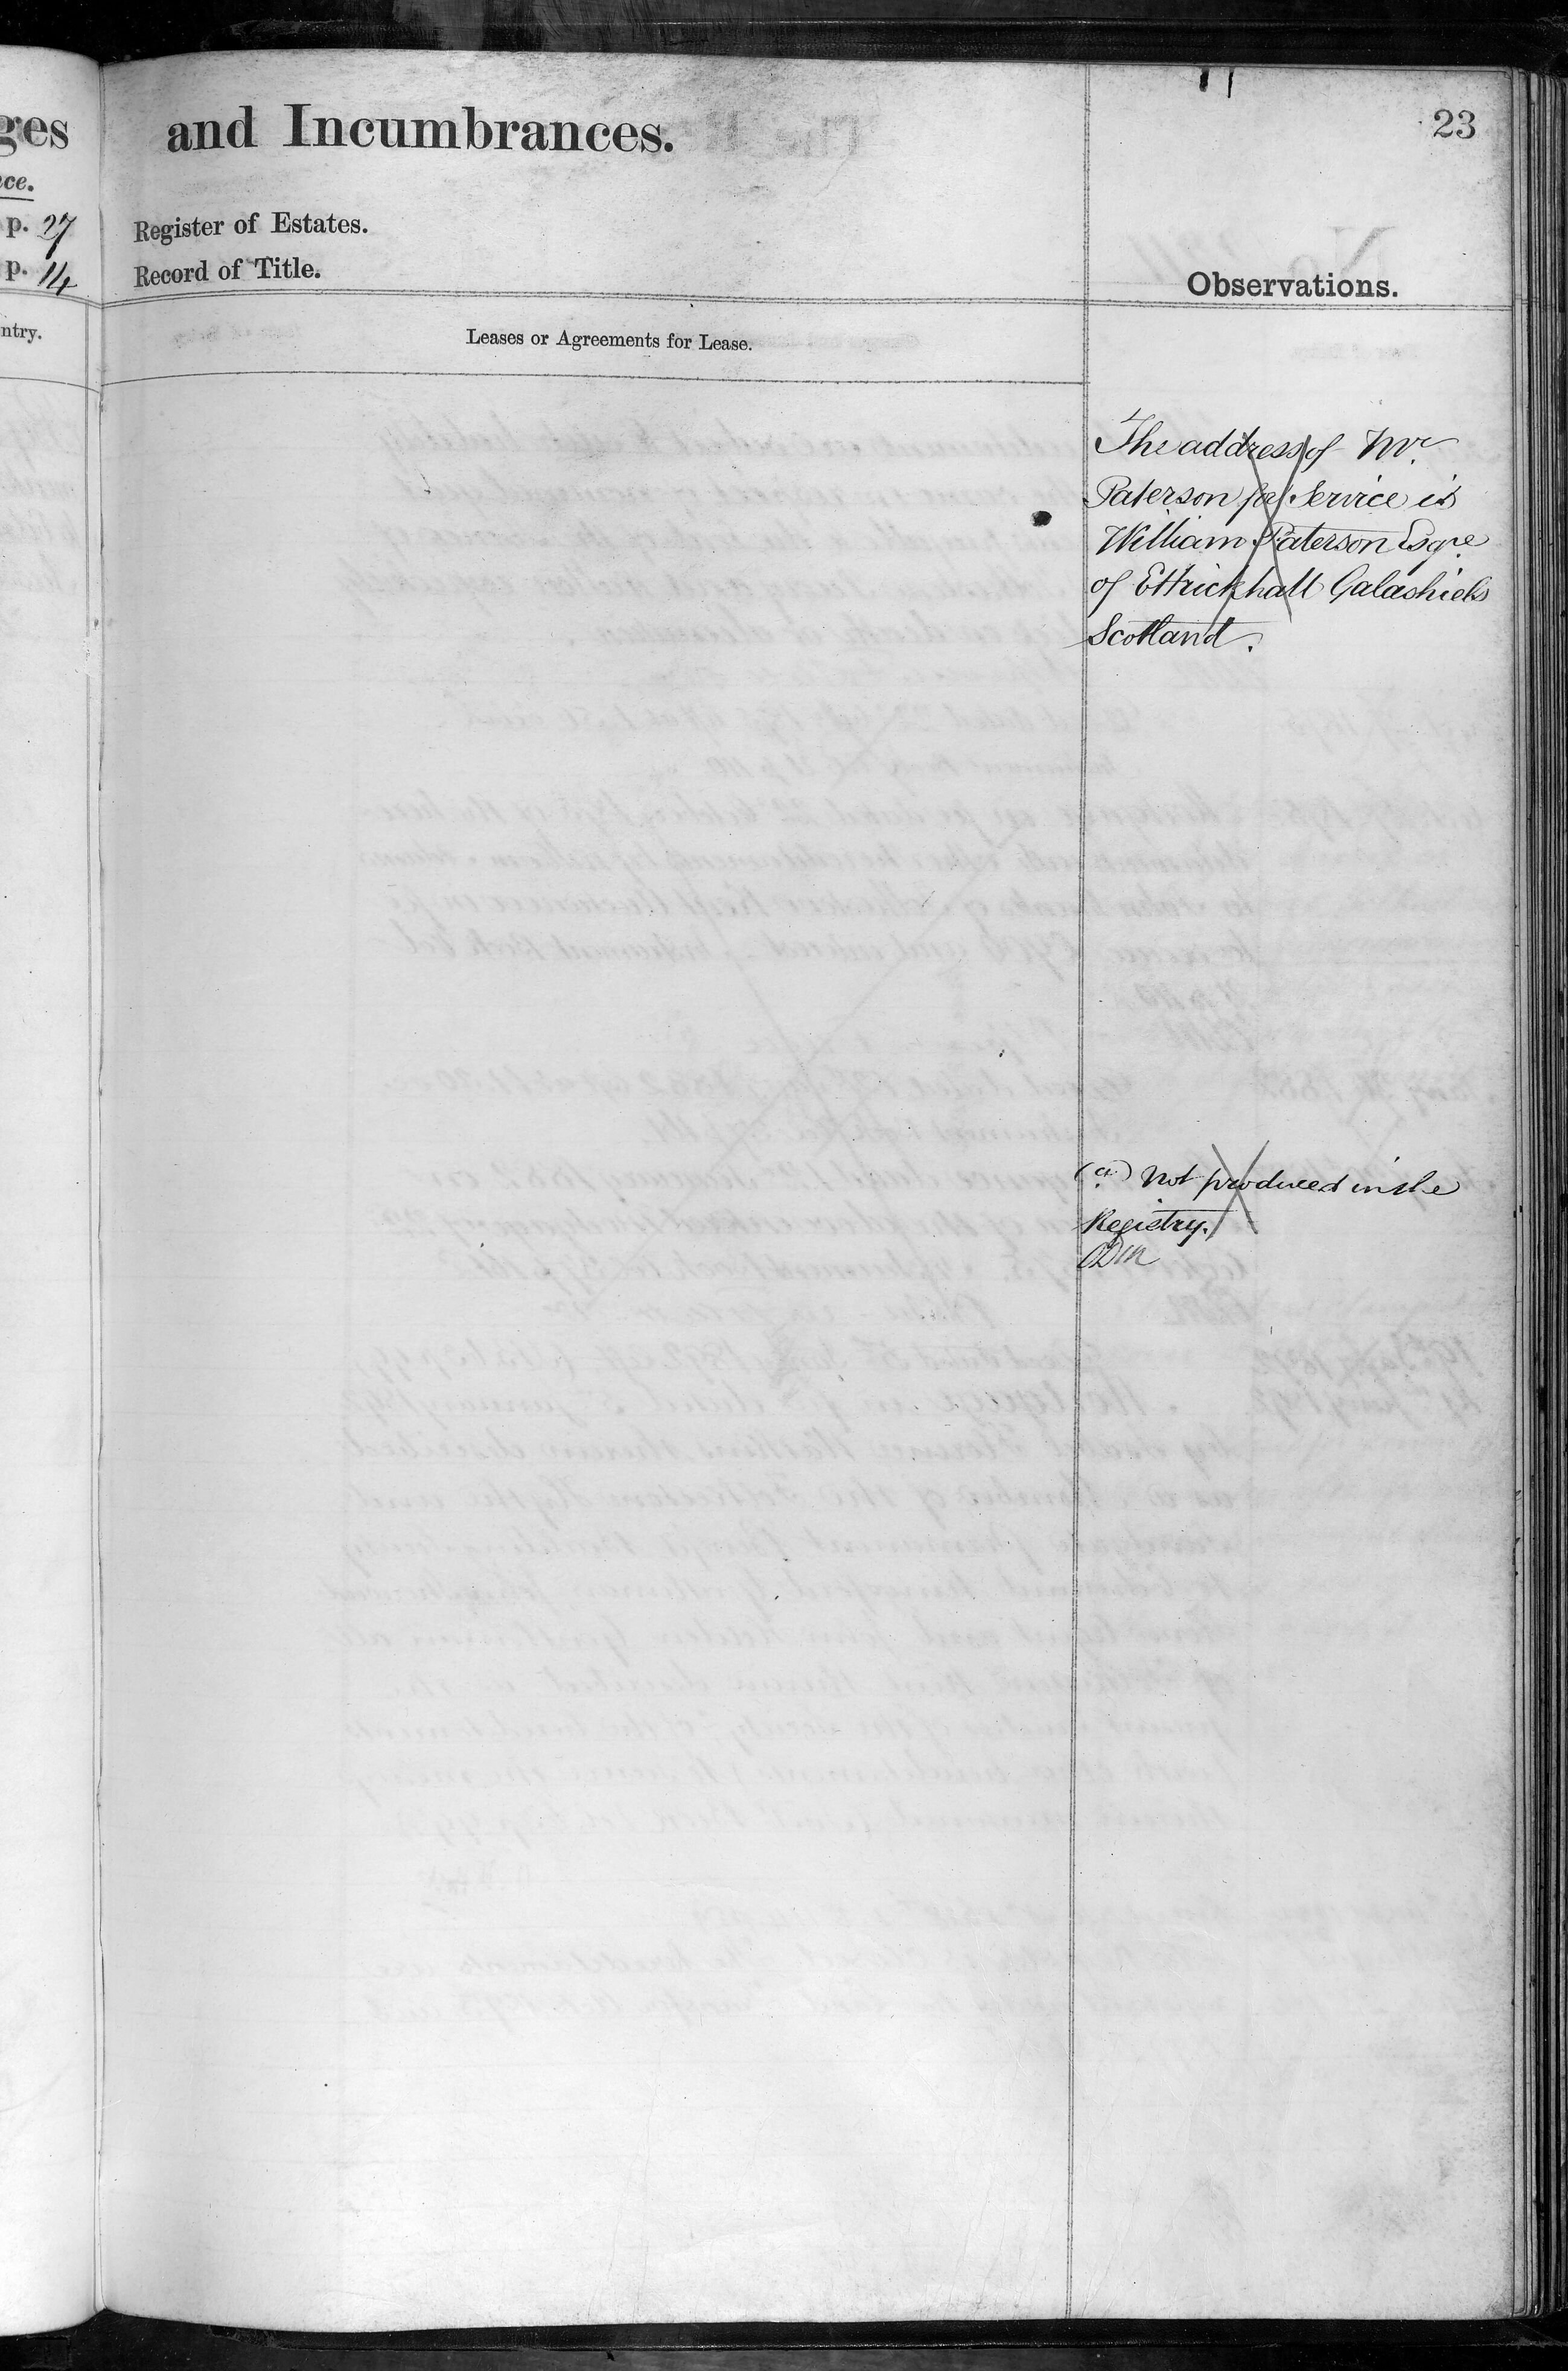 ges
and Incumbrances.
23
ce.
p. 27
Register of Estates.
p. 14
Record of Title.
Observations.
ntry.
Leases or Agreements for Lease.
The address of Mr.
Paterson for Service is
William Paterson Esqre
of Ettrickhall Galashiels
Scotland.
(a) Not produced in the
Registry.